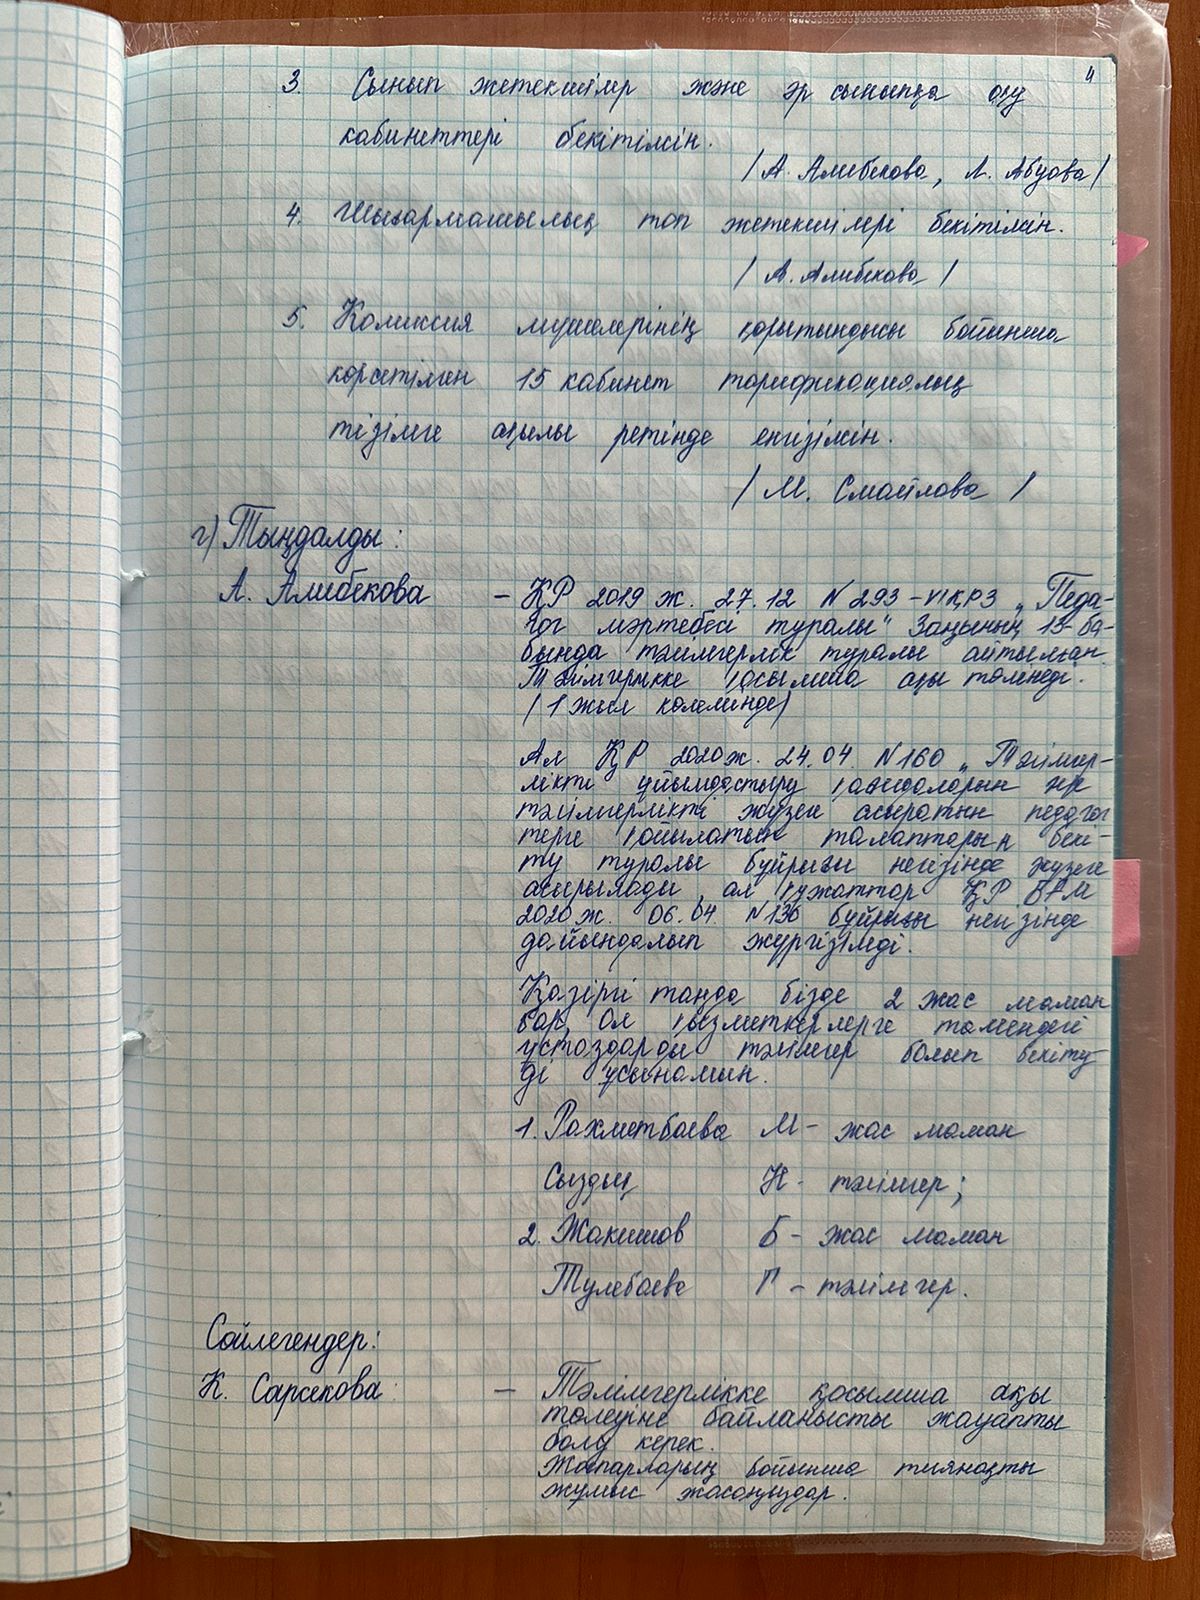 4
3. Сынып жетекшілер және әр сыныпқа оқу
кабинеттері бекітілсін.
/ А. Алибекова, Л. Абуова /
4. Шығармашылық топ жетекшілері бекітілсін.
/ А. Алибекова /
5. Комиссия мүшелерінің қорытындысы бойынша
көрсетілген 15 кабинет тарификациялық
тізімге ақылы ретінде енгізілсін.
/ М. Смайлова /
г) Тыңдалды:
А. Алибекова – ҚР 2019 ж. 27.12 N 293-VIҚРЗ „Педа-
гог мәртебесі туралы" Заңының 13-ба-
бында тәлімгерлік туралы айтылған.
Тәлімгерлікке қосымша ақы төленеді.
/ 1 жыл көлемінде/
Ал ҚР 2020ж. 24.04. N160 „Тәлімгер-
лікті ұйымдастыру қағидаларын және
тәлімгерлікті жүзеге асыратын педагог
терге қойылатын талаптарын бекі-
ту туралы бұйрығы негізінде жүзеге
асырылады, ал құжаттар ҚР БҒМ
2020ж. 06.04 N136 бұйрығы негізінде
дайындалып жүргізілмді.
Қазіргі таңда бізде 2 жас маман
бар, ол қызметкерлерге төмендегі
ұстаздарды тәлімгер болып бекіту
ді ұсынамын.
1. Рахметбаева М – жас маман
Сыздық Н – тәлімгер;
2. Жакишов Б – жас маман
Тулебаева Г – тәлімгер.
Сөйлегендер:
К. Сарсекова: – Тәлімгерлікке қосымша ақы
төлеуіне байланысты жауапты
болу керек.
Жапарларың бойынша тиянақты
жұмыс жасаңыздар.